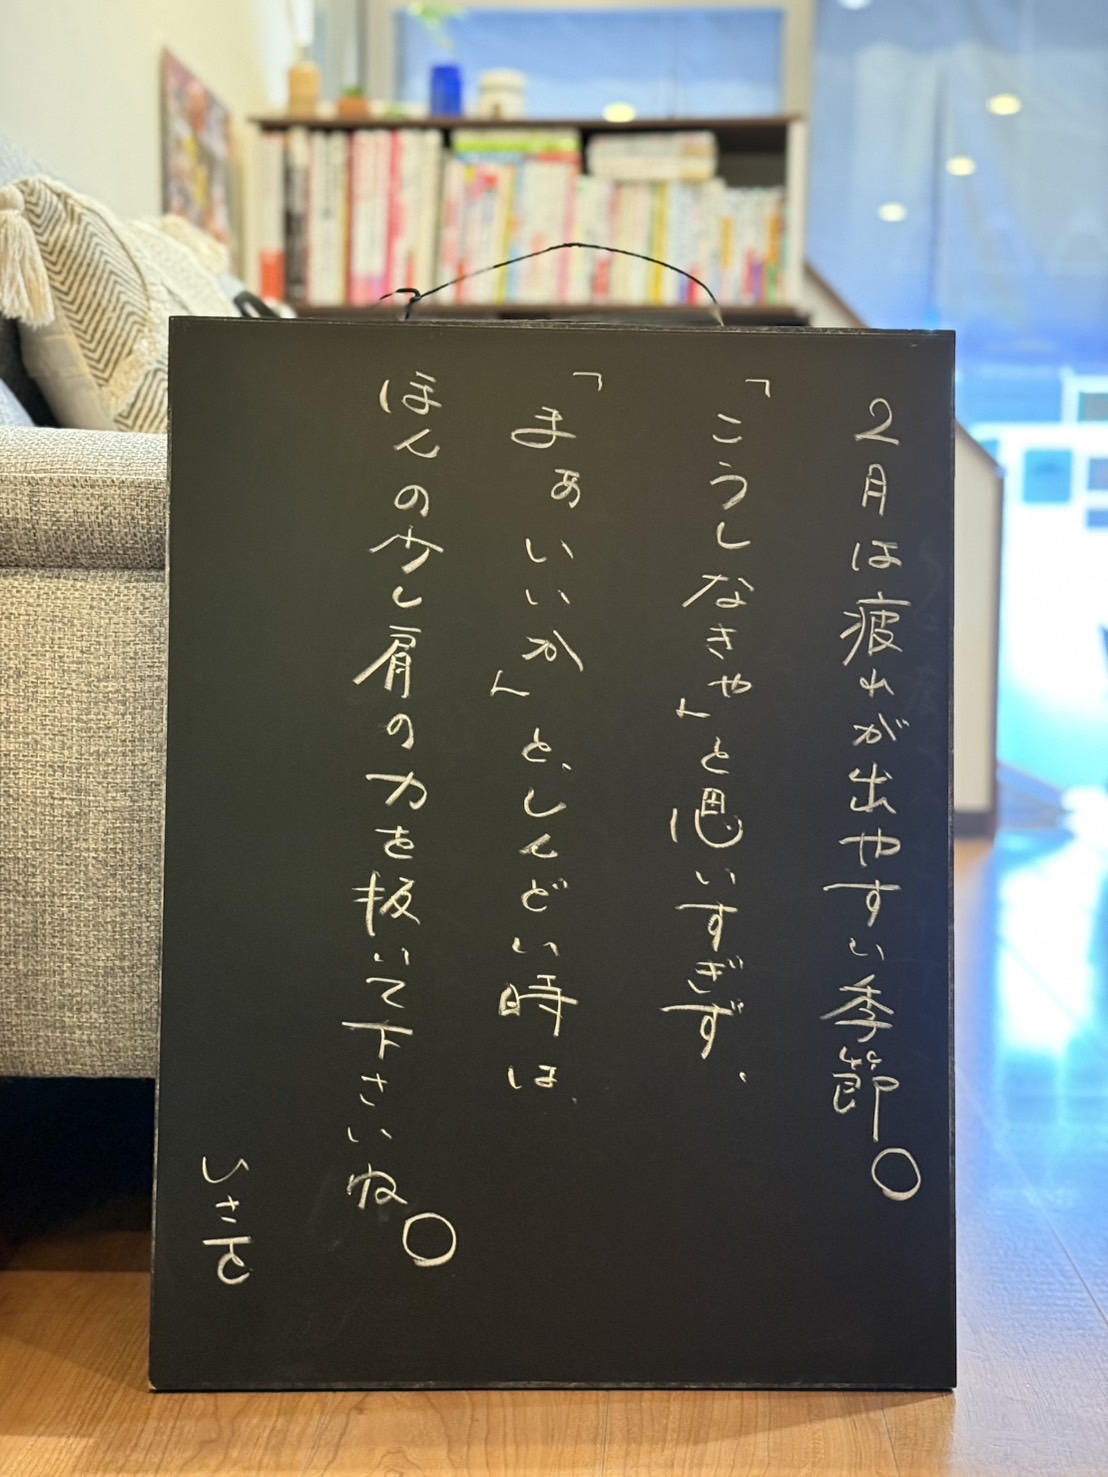 2月は疲れが出やすい季節。
「こうしなきゃ」と思いすぎず、
「まぁいいか」と、しんどい時は、
ほんの少し肩の力を抜いて下さいね。
ひさを